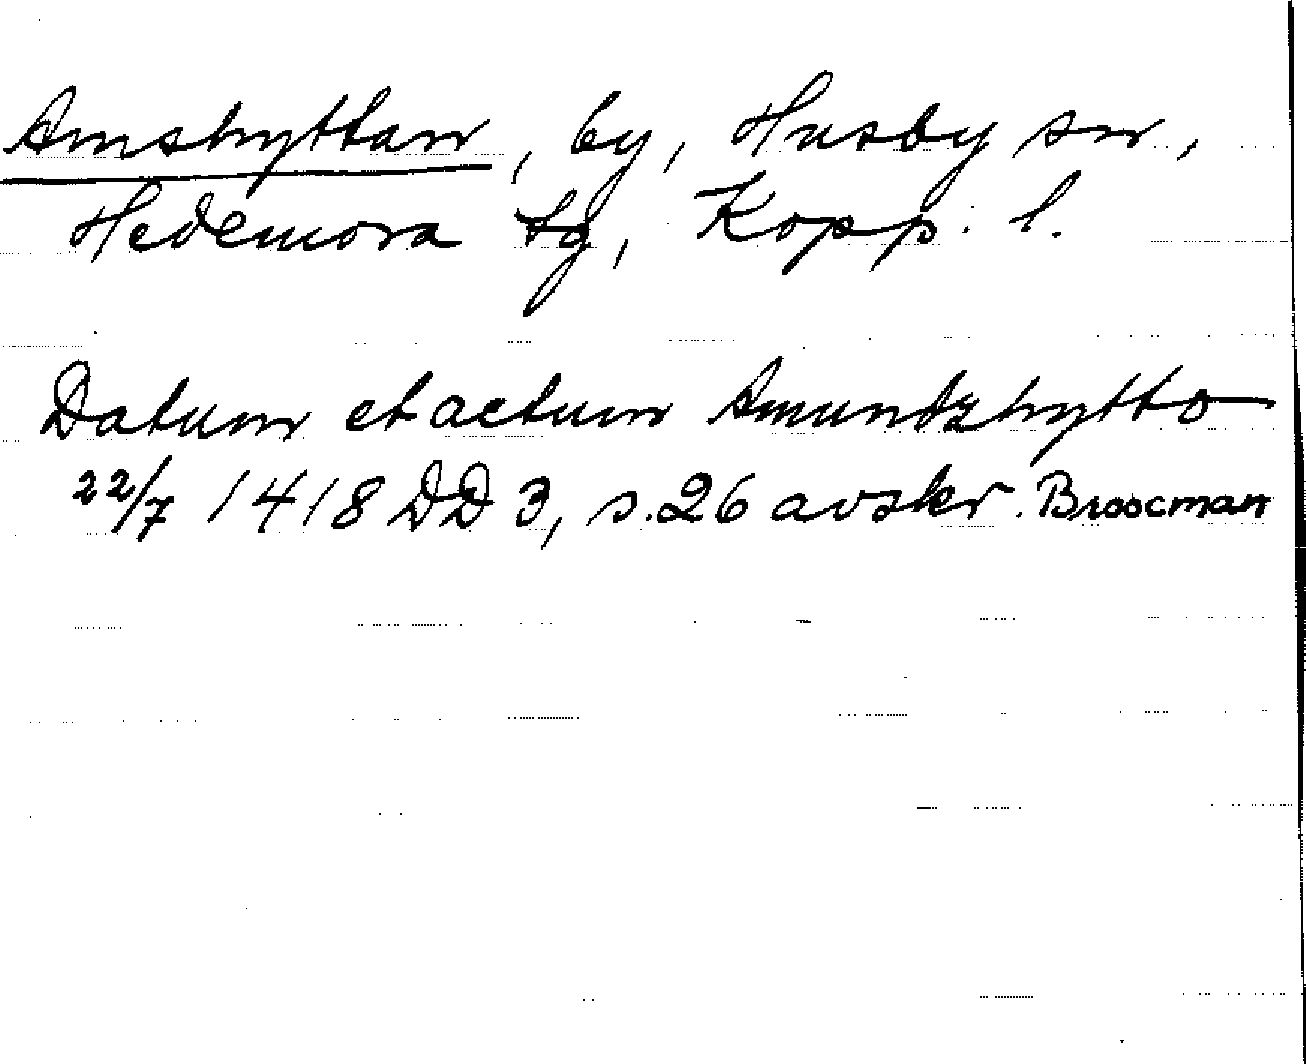 Amshyttan, by, Husby sn,
Hedemora tg, Kopp. l.
Datum et actum Amundzhytto
22/7 1418 DD 3, s. 26 avskr. Broocman